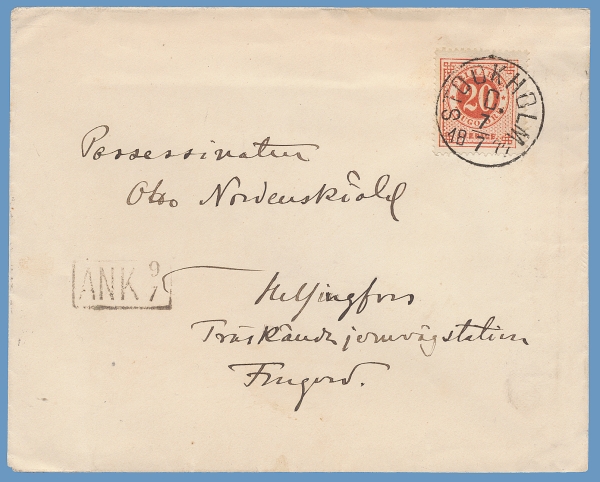 STOCKHOLM
D.
7
18 7 77
20
Possessionaten
Otto Nordenskiöld
ANK 9/7
Helsingfors
Träskända jernvägstation